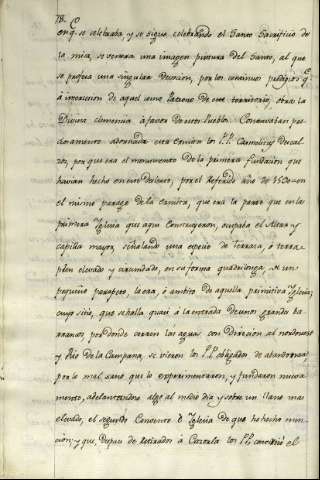 78.
en q.e se celebraba, y se sigue celebrando el Santo Sacrificio de
la misa, se venera una imagen pintura del Santo, al que
se profesa una singular devocion, por los continuos prodigios q.e
á intercesion de aquel como Patrono de este territorio, obra la
Divina clemencia á favor de estos Pueblos. Conservaban per
adornada esta Ermita los P.P. Carmelitas Descal
zos, por que era el monumento de la primera fundacion que
havian hecho en este desierto, por el referido año de 15 en
el mismo parage de la Ermita, que era la parte que en la
primera Iglesia que aqui construyeron, ocupaba el Altar y
capilla mayor, señalando una especie de terraza, o terra
plen elevado y circundado, en su forma quadrilonga, de un
pequeño parapeto la area, ó ambito de aquella primitiva Iglesia,
cuyo sitio, que se halla quasi á la entrada de unos grandes ba
rrancos por donde corren las aguas con direccion al nordueste
y Rio de la Campana, se vieron los P.P. obligados de abandonar
por lo mal sano que lo experimentaron, y fundaron nueva
mente, adelantandose algo al medio dia y sobre un llano mas
elevado, el segundo Convento é Iglesia de que he hecho men
cion; y que, despues de retirados á Cazorla los P.P. el